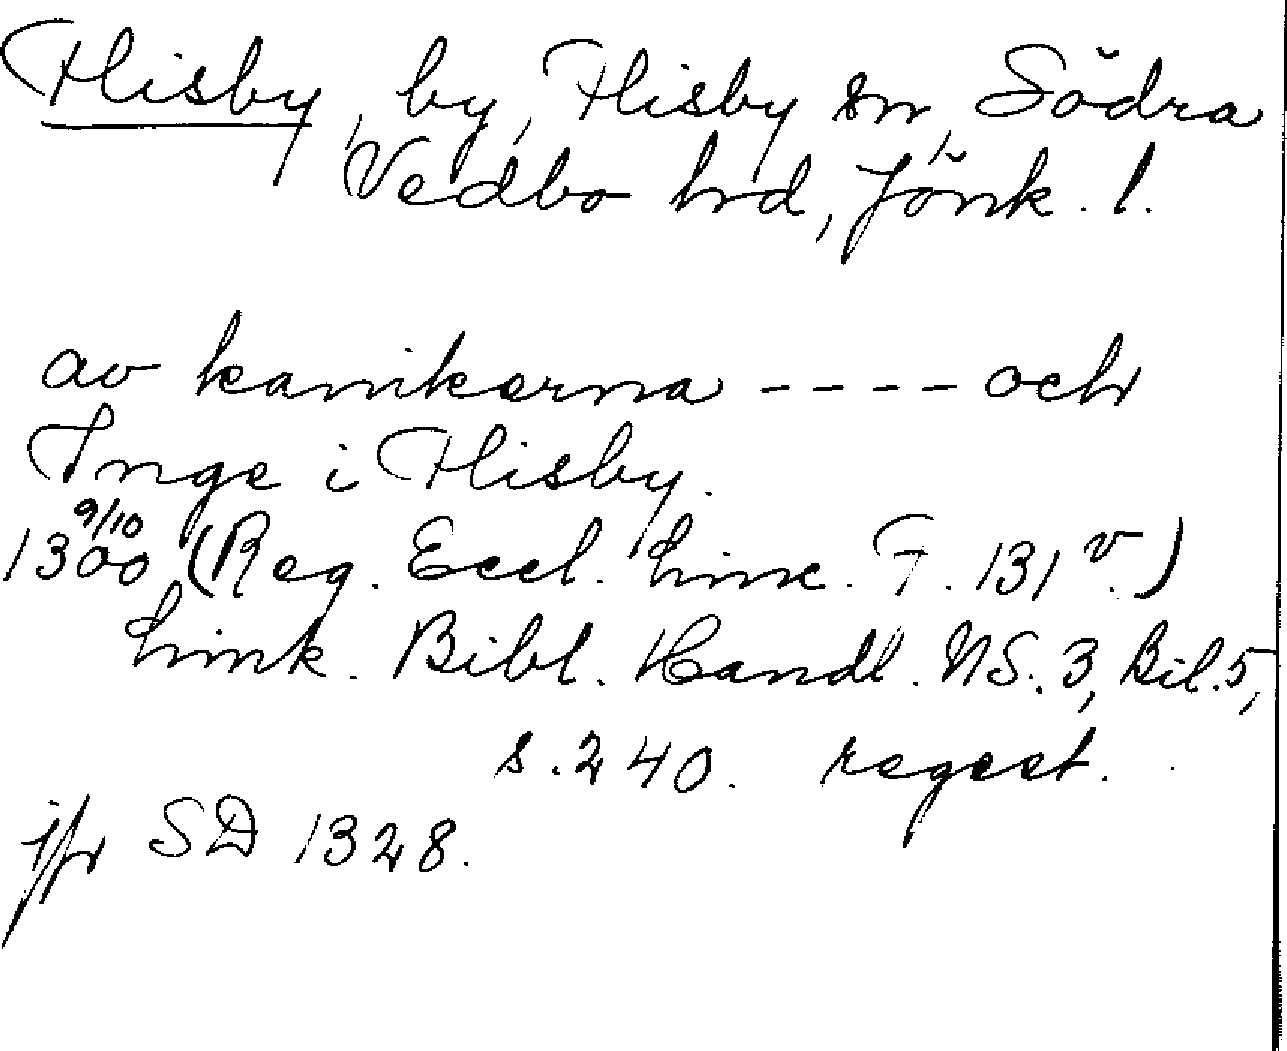 Flisby, by, Flisby sn, Södra
Vedbo hrd, Jönk. l.
av kanikerna ---- och
Inge i Flisby.
9/10
1300 (Reg. Eccl. Linc. F. 131 v.)
Link. Bibl. Handl. NS. 3, Bil. 5,
s. 240. regest.
jfr SD 1328.